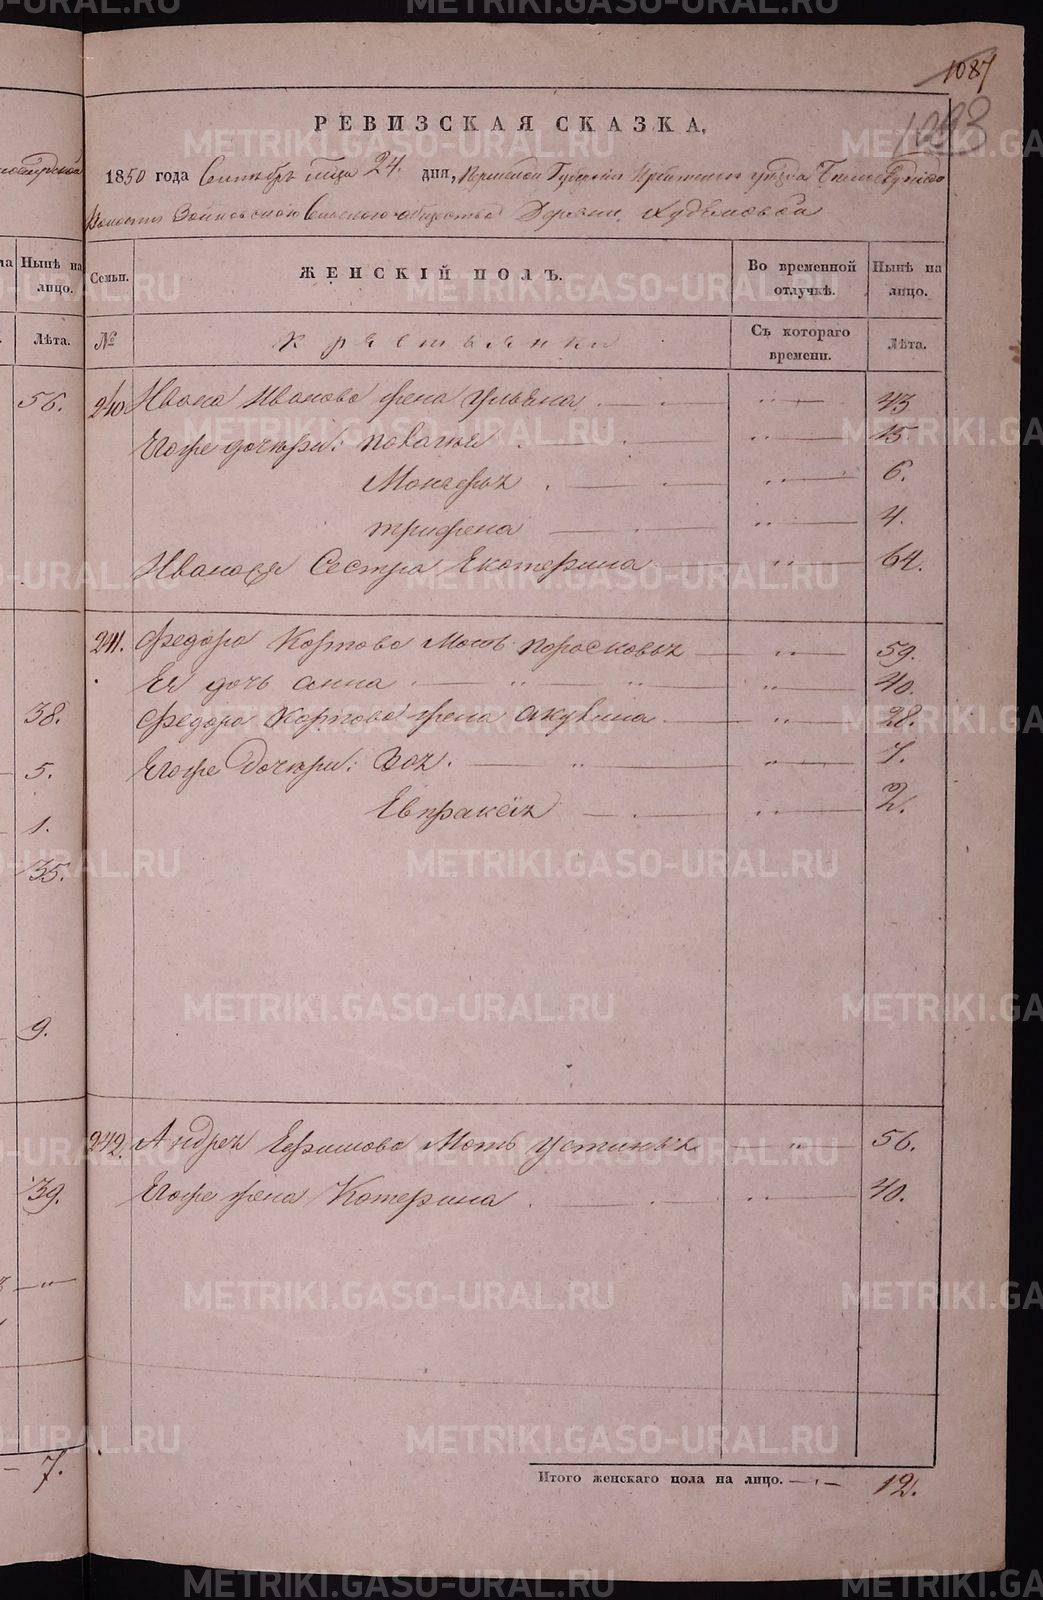 1087
1093
РЕВИЗСКАЯ СКАЗКА,
1850 года Сентября м-ца 24. дня, Пермской Губернии Ирбитскаго уезда
Волости Зайковскаго Сельскаго общества Деревни
Нынѣ на лицо.
Семьи.
ЖЕНСКІЙ ПОЛЪ.
Во временной отлучкѣ.
Нынѣ на лицо.
Лѣта.
№
Крестьянки
Съ котораго времени.
Лѣта.
56.
240 Ивана Иванова жена Ульяна 43
Егоже дочери: Повагия 15
Мангефья 6.
Трифена 4.
Иванова Сестра Екатерина 64.
241. Федора Карпова Мать Парасковья 59.
Ея дочь Анна 40.
38.
Федора Карпова жена Акулина 28.
5.
Егоже Дочери: Зоя 7.
1.
Евпраксия 2.
35.
9.
242. Андрея Ефимова Мать Устинья 56.
39.
Егоже жена Катерина 40.
7.
Итого женскаго пола на лицо. 12.
METRIKI.GASO-URAL.RU